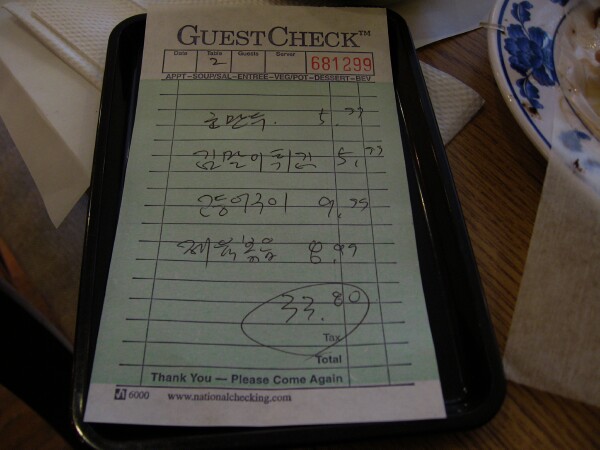 GUEST CHECK™
Date Table Guests Server
2 681299
APPT-SOUP/SAL-ENTREE-VEG/POT-DESSERT-BEV
군만두. 5.99
김말이튀김 5.99
9.99
제육볶음 8.99
33.80
Tax
Total
Thank You — Please Come Again
6000 www.nationalchecking.com